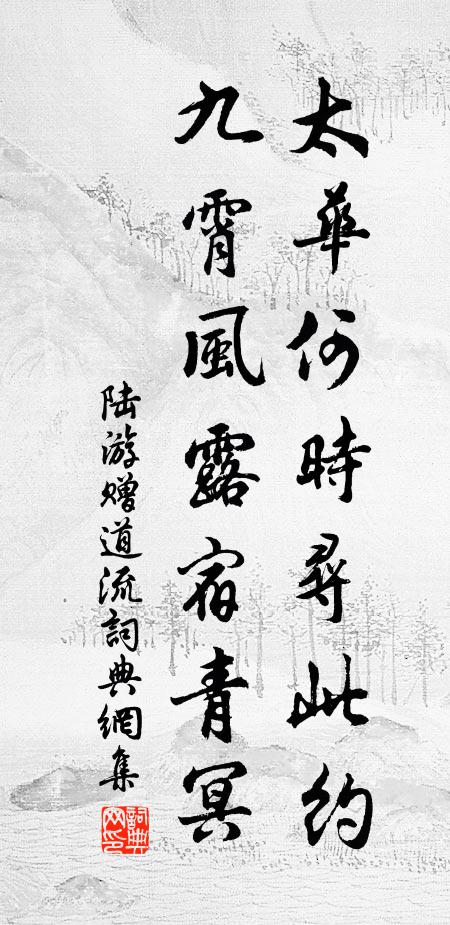 太華何時尋此約
九霄風露宿青冥
陆游赠道流詞典網集
詞典網印